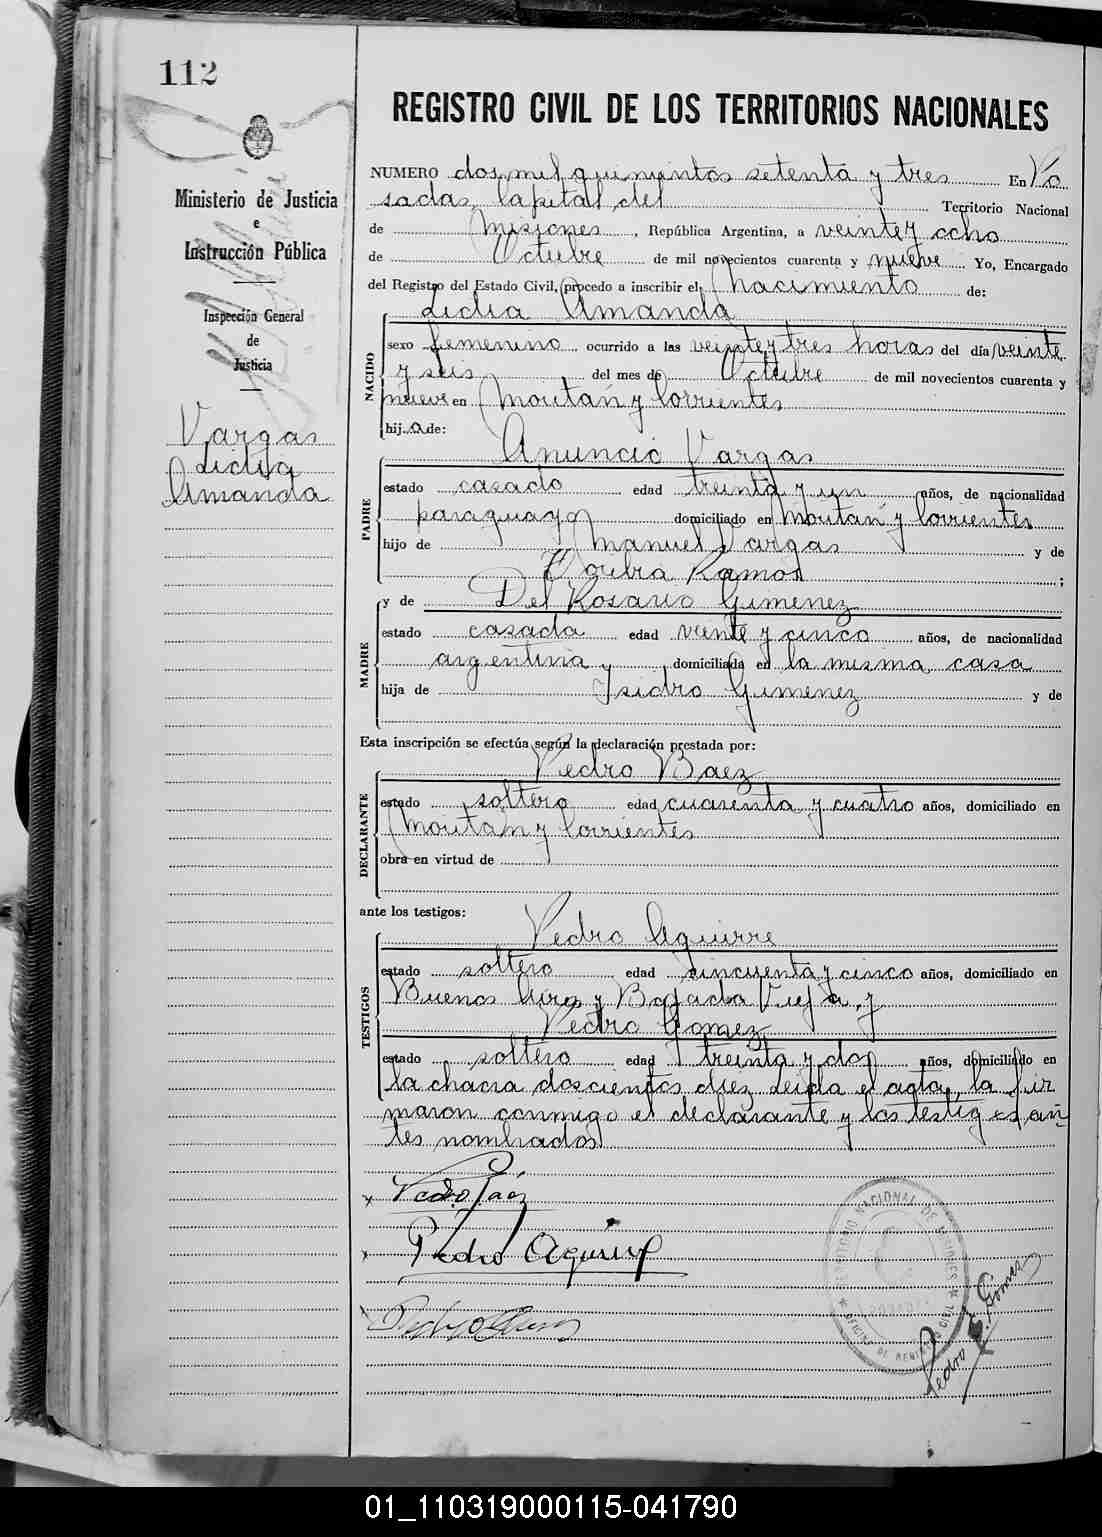 112
Ministerio de Justicia
e
Instrucción Pública
Inspección General
de
Justicia
Vargas
Lidia
Amanda
REGISTRO CIVIL DE LOS TERRITORIOS NACIONALES
NUMERO dos mil quinientos setenta y tres En Po
sadas, Capital del Territorio Nacional
de Misiones, República Argentina, a veinte y ocho
de Octubre de mil novecientos cuarenta y nueve Yo, Encargado
del Registro del Estado Civil, procedo a inscribir el nacimiento de:
Lidia Amanda
NACIDO
sexo femenino ocurrido a las veinte y tres horas del día veinte
y seis del mes de Octubre de mil novecientos cuarenta y
nueve en Moutan y Corrientes
hija de:
Anuncio Vargas
PADRE
estado casado edad treinta y un años, de nacionalidad
paraguayo domiciliado en Moutan y Corrientes
hijo de Manuel Vargas y de
Ramos;
y de Del Rosario Gimenez
MADRE
estado casada edad veinte y cinco años, de nacionalidad
argentina y domiciliada en la misma casa
hija de Isidro Gimenez y de
Esta inscripción se efectúa según la declaración prestada por:
Pedro Baez
DECLARANTE
estado soltero edad cuarenta y cuatro años, domiciliado en
Moutan y Corrientes
obra en virtud de
ante los testigos:
Pedro Aguirre
TESTIGOS
estado soltero edad cincuenta y cinco años, domiciliado en
Buenos Aires y Bajada Vieja y
Pedro Gomez
estado soltero edad treinta y dos años, domiciliado en
la chacra doscientos diez Leida el acta, la fir
maron conmigo el declarante y los testigos an-
tes nombrados
Pedro Báez
Pedro Aguirre
TERRITORIO NACIONAL DE MISIONES
OFICINA DE REGISTRO CIVIL
Pedro E. Gómez
01_110319000115-041790